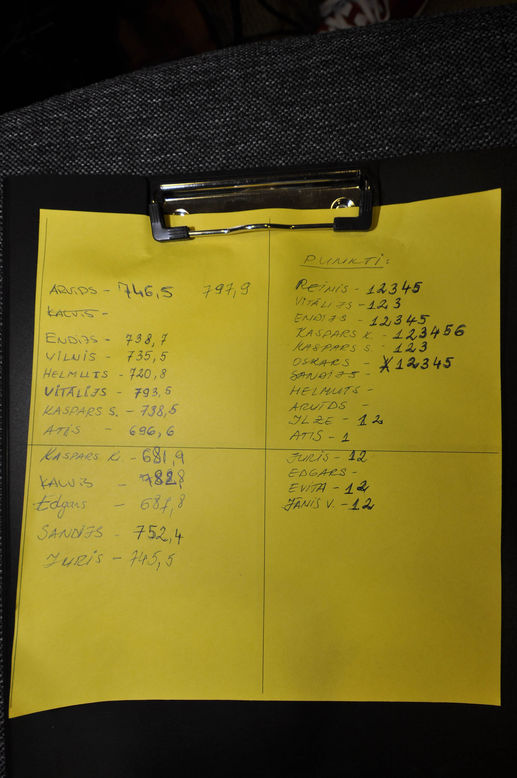 ARVIDS - 746,5 797,9
KALVIS -
ENDIJS - 738,7
VILNIS - 735,5
HELMUTS - 720,8
VITĀLIJS - 793,5
KASPARS S. - 738,5
ATIS - 696,6
KASPARS K. - 681,9
KALVIS - 782,8
Edgars - 681,8
SANDIJS - 752,4
JURIS - 745,5
PUNKTI:
REINIS - 12345
VITĀLIJS - 123
ENDIJS - 12345
KASPARS K. - 123456
KASPARS S. - 123
OSKARS - 12345
SANDIJS -
HELMUTS -
ARVĪDS -
ILZE - 12
ATIS - 1
JURIS - 12
EDGARS -
EVITA - 12
JĀNIS V. - 12